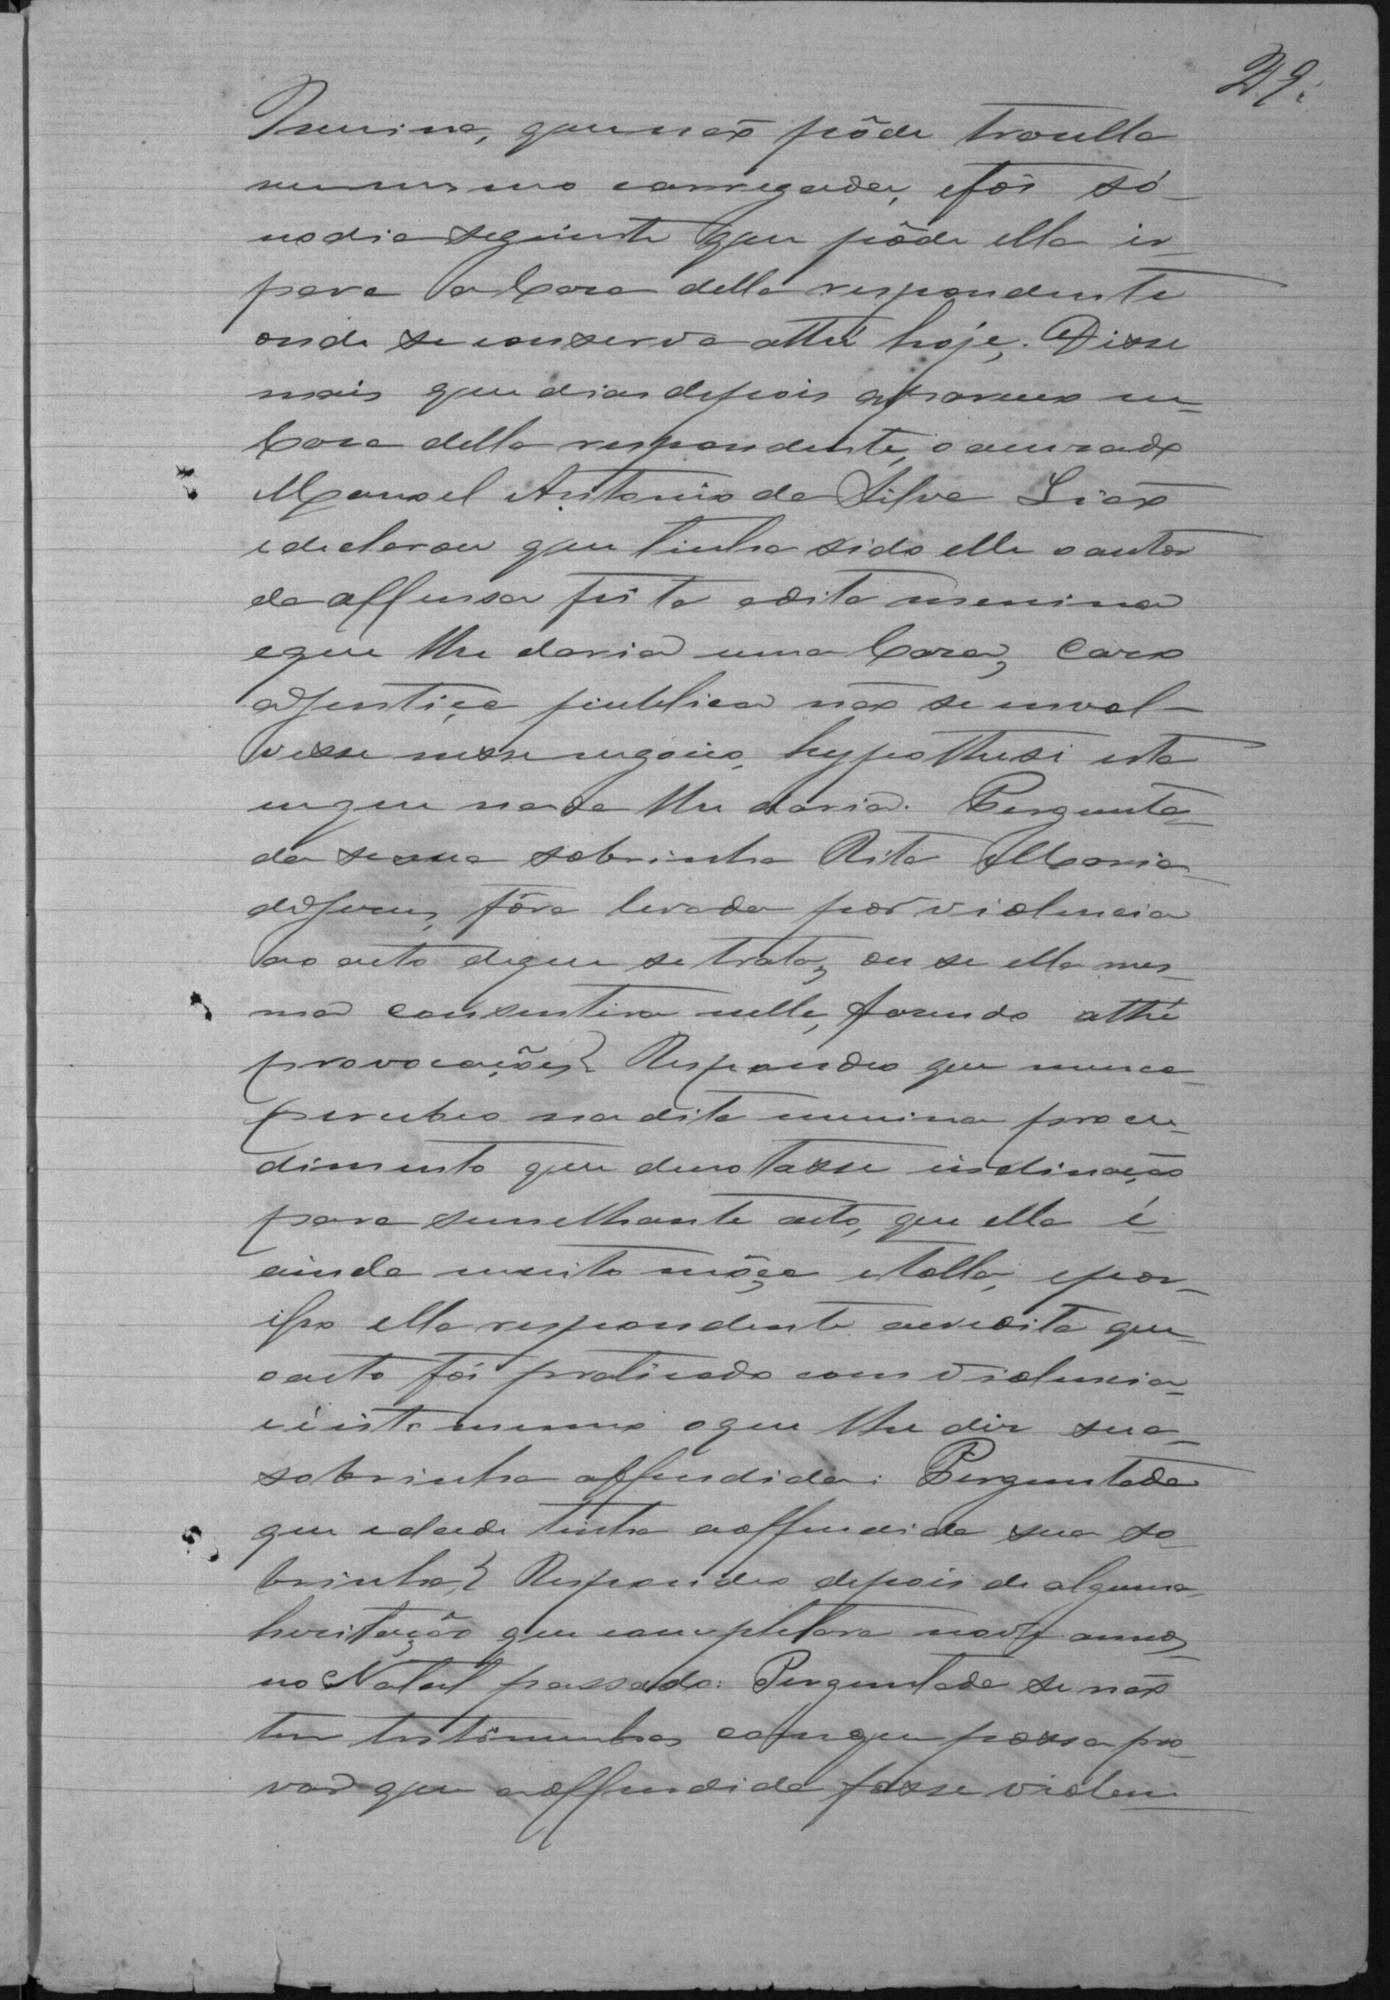 29.
menina, que não pôde trazella
nem mesmo carregada, e foi só
no dia seguinte que pôde ella ir
para a casa della respondente
onde se conserva atthé hoje. Disse
mais que dias depois appareceu em
casa della respondente, o accusado
Manoel Antonio da Silva Leão
e declarou que tinha sido elle o autor
da affensa feita a dita menina
e que lhe daria uma casa, caso
a justiça publica não se invol-
vesse nesse negocio, hypothese esta
em que nada lhe daria. Pergunta-
da se sua sobrinha Rita Maria
de Jesus, fôra levada por violencia
ao acto de que se trata, ou se ella mes-
ma consentira nelle, fazendo atthé
provocações? Respondeo que nunca
percebeo na dita menina proce-
dimento que denotasse inclinação
para semelhante acto, que ella é
ainda muito môça e tolla, e por
isso ella respondente acredita que
o acto foi praticado com violencia
e é isto mesmo o que lhe diz sua
sobrinha offendida: Perguntada
que edade tinha a offendida sua so-
brinha? Respondeo depois de alguma
hezitação que completara nove annos
no Natal passado: Perguntada se não
tem testimunhas com que possa pro-
var que a offendida fosse violen-